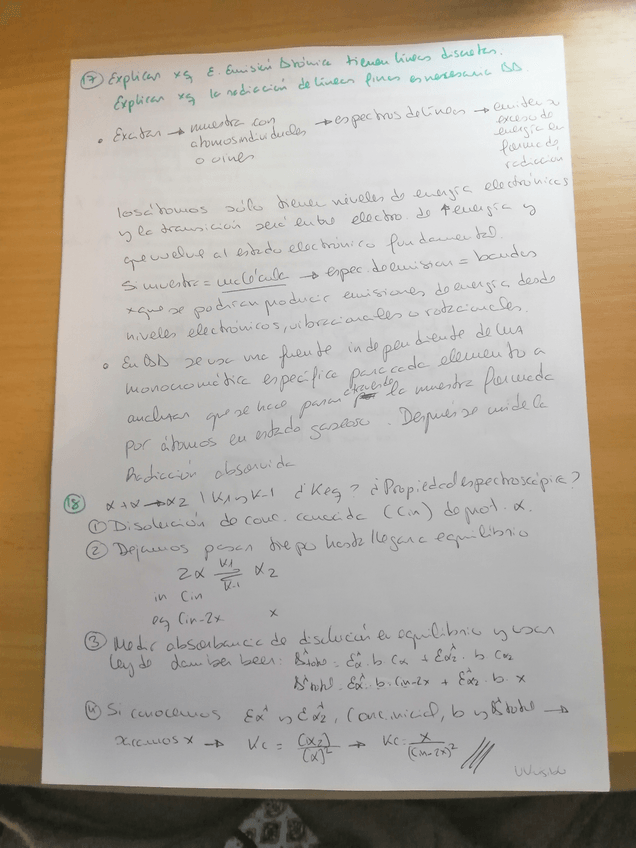 17 Explicar xq E. Emisión Atómica tienen líneas discretas.
Explicar xq la radiación de líneas finas es necesaria AA.
• Excitar → muestra con átomos individuales o iones → espectros de líneas → emiten exceso de energía en forma de radiación
los átomos sólo tienen niveles de energía electrónicos
y la transición será entre electro. de ↑ energía y
que vuelve al estado electrónico fundamental
Si muestra = molécula → espec. de emision = bandas
xq se podrían producir emisiones de energía desde
niveles electrónicos, vibracionales o rotacionales.
• En AA se usa una fuente independiente de luz
monocromática específica para cada elemento a
analizar que se hace pasar a través la muestra formada
por átomos en estado gaseoso. Después se mide la
Radiación absorvida
18 α + α → α2 | K1 y K-1 ¿Keq? ¿Propiedad espectroscópica?
① Disolución de conc. conocida (Cin) de prot. α.
② Dejamos pasar tiepo hasta llegar a equilibrio
2α K1 ⇌ K-1 α2
in Cin
eq Cin-2x x
③ Medir absorbancia de disolución en equilibrio y usar
ley de damber beer: Aλtotal = Ελα · b · Cα + Ελα2 · b · Cα2
Aλtotal = Ελα · b · Cin-2x + Ελα2 · b · x
④ Si conocemos Ελα y Ελα2, Conc. inicial, b y Aλtotal →
sacamos x → Kc = (α2)/(α)² → Kc = x/(Cin-2x)²